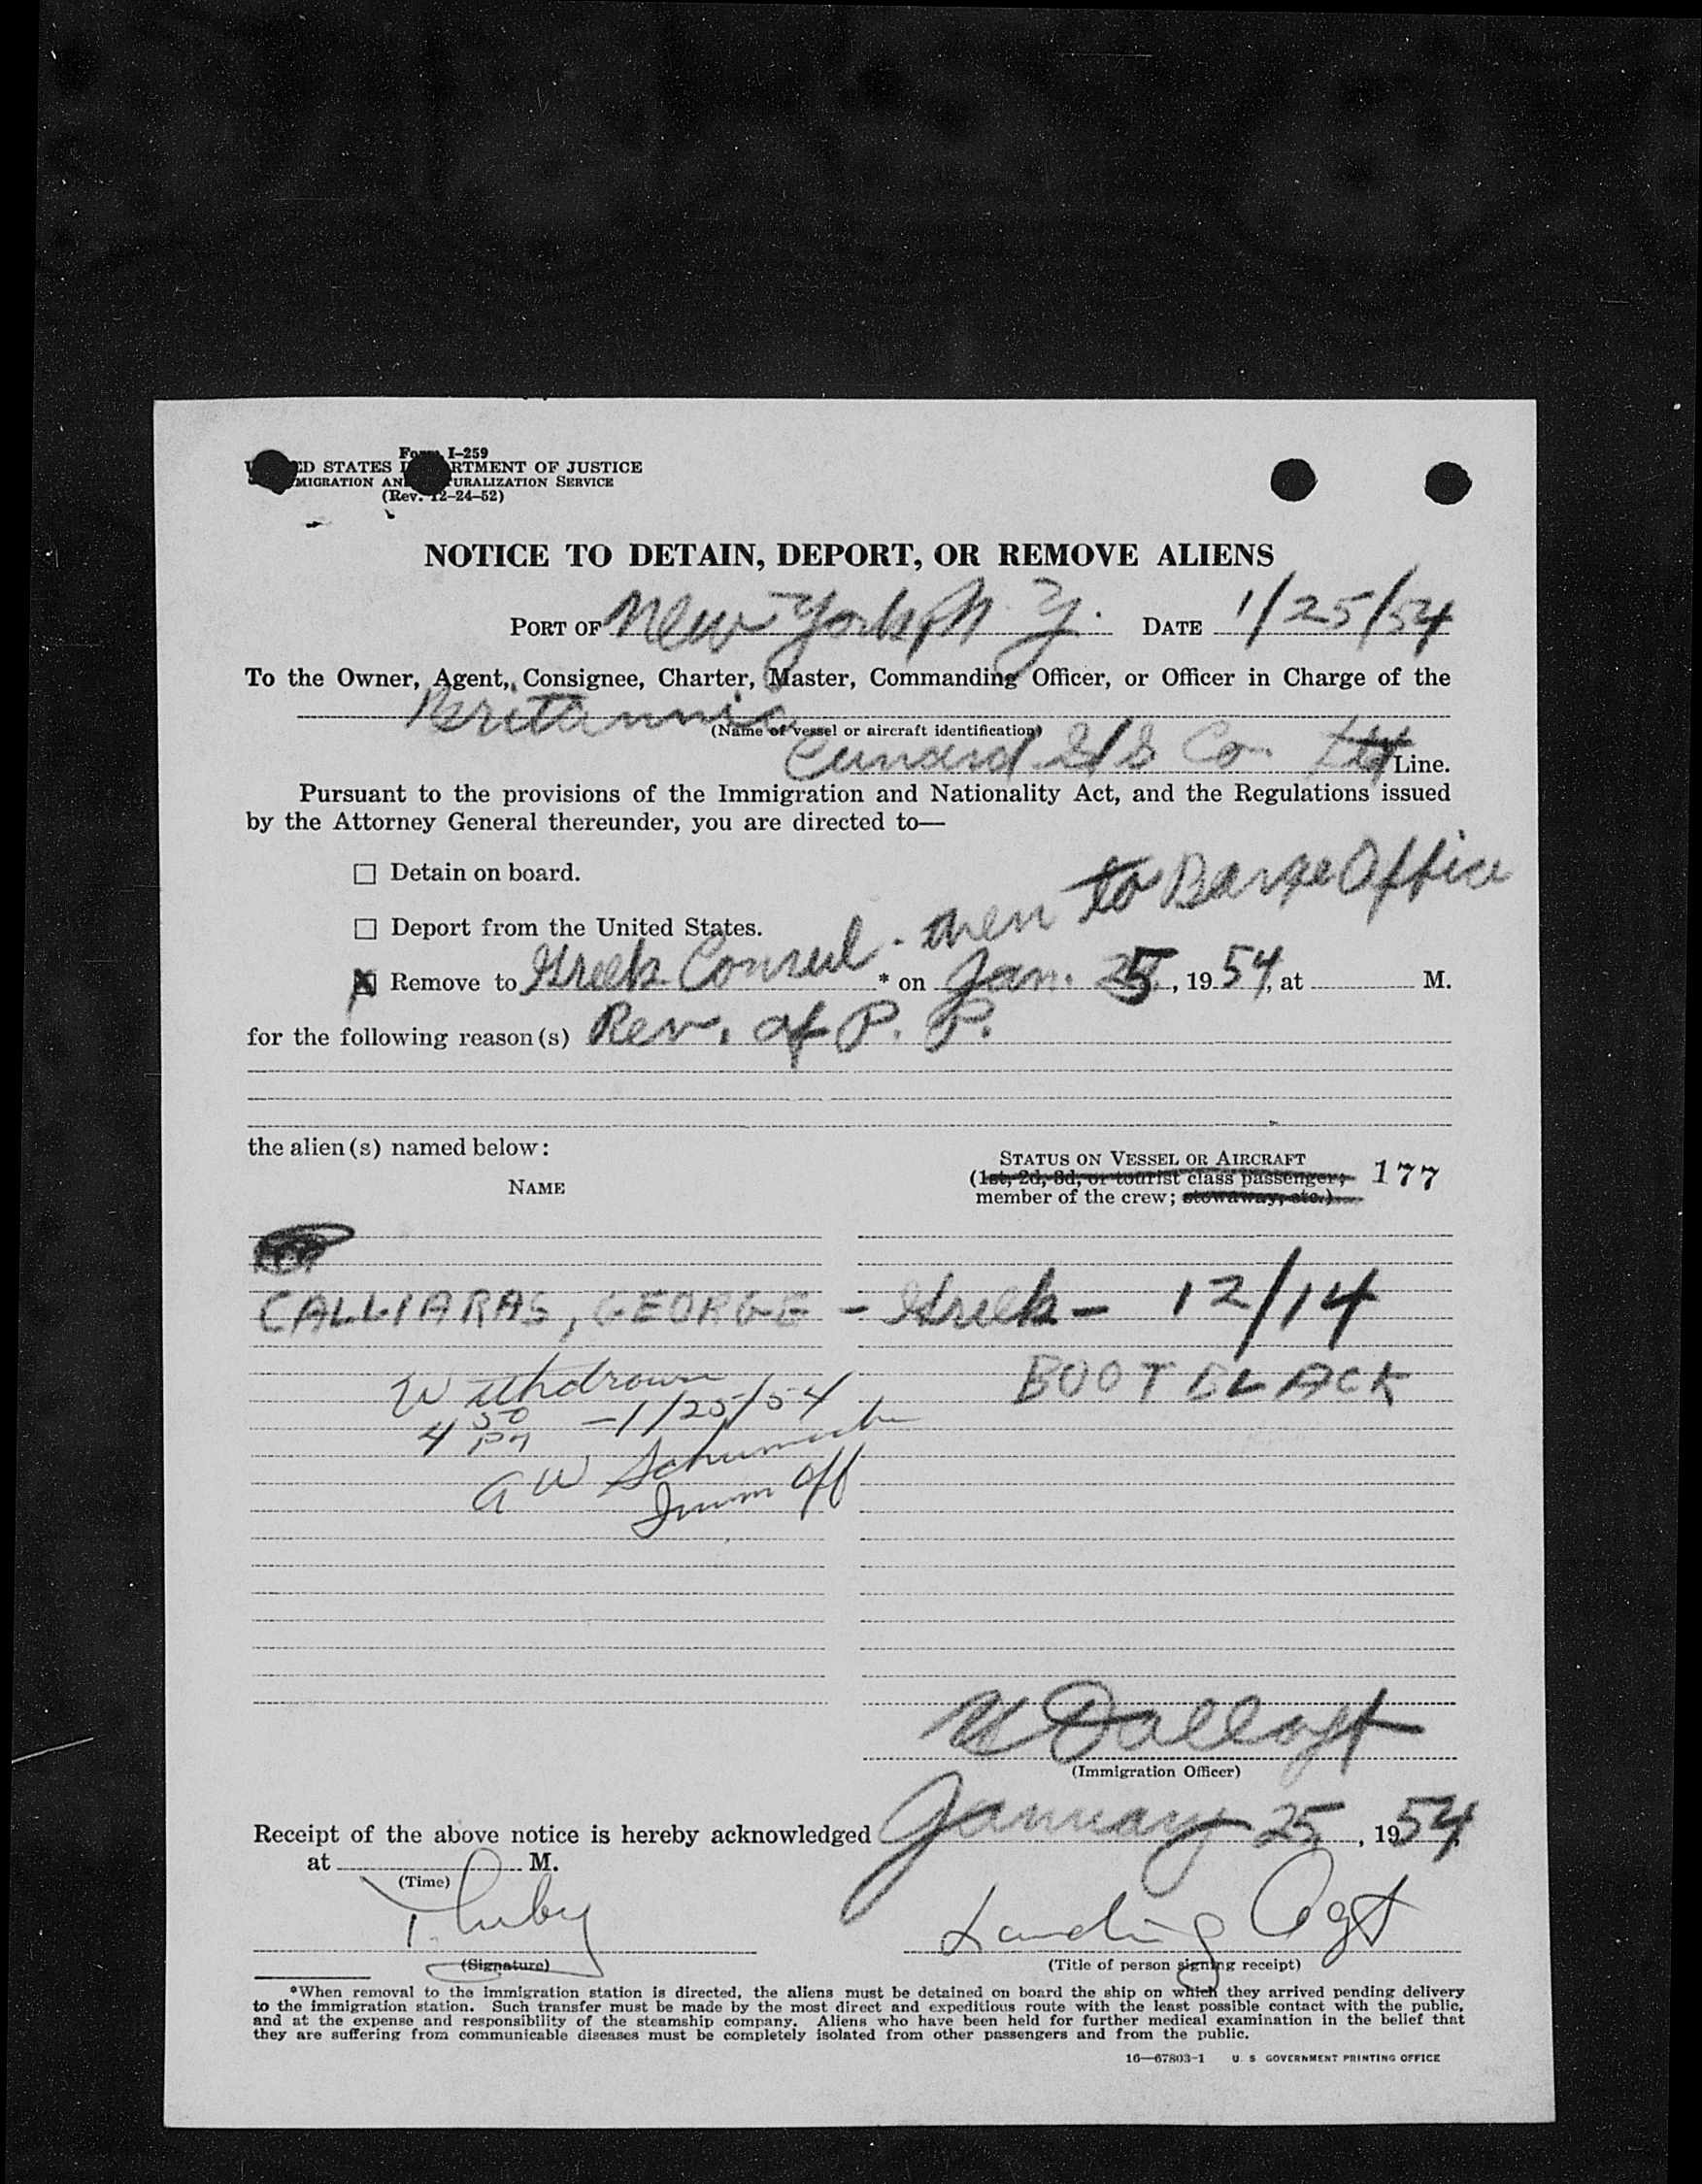 Form I-259
UNITED STATES DEPARTMENT OF JUSTICE
IMMIGRATION AND NATURALIZATION SERVICE
(Rev. 12-24-52)
NOTICE TO DETAIN, DEPORT, OR REMOVE ALIENS
PORT OF New York, N. Y. DATE 1/25/54
To the Owner, Agent, Consignee, Charter, Master, Commanding Officer, or Officer in Charge of the
Britannic
(Name of vessel or aircraft identification)
Cunard S/S Co Ltd Line.
Pursuant to the provisions of the Immigration and Nationality Act, and the Regulations issued
by the Attorney General thereunder, you are directed to—
☐ Detain on board.
to Barge Office
☐ Deport from the United States.
☒ Remove to Greek Consul * on Jan. 25, 1954, at M.
for the following reason(s) Rev. of P. P.
the alien(s) named below:
NAME
STATUS ON VESSEL OR AIRCRAFT
(1st, 2d, 3d, or tourist class passenger; 177
member of the crew; stowaway, etc.)
CALLIARAS, GEORGE - Greek - 12/14
BOOTBLACK
Withdrawn
4 50 PM - 1/25/54
A W Schumach
Imm Off
(Immigration Officer)
Receipt of the above notice is hereby acknowledged January 25, 1954
at M.
(Time)
Landing Agt
(Signature)
(Title of person signing receipt)
*When removal to the immigration station is directed, the aliens must be detained on board the ship on which they arrived pending delivery
to the immigration station. Such transfer must be made by the most direct and expeditious route with the least possible contact with the public,
and at the expense and responsibility of the steamship company. Aliens who have been held for further medical examination in the belief that
they are suffering from communicable diseases must be completely isolated from other passengers and from the public.
16—67803-1 U. S. GOVERNMENT PRINTING OFFICE